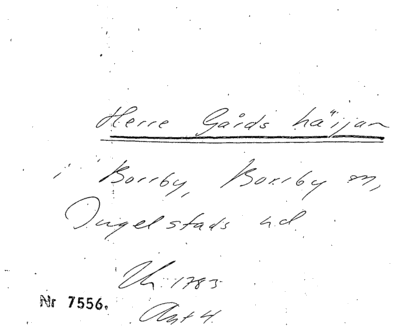 Herre Gårds häijan
i Borrby, Borrby sn,
Ingelstads hd
Ur 1783
Nr 7556.
Akt 4.